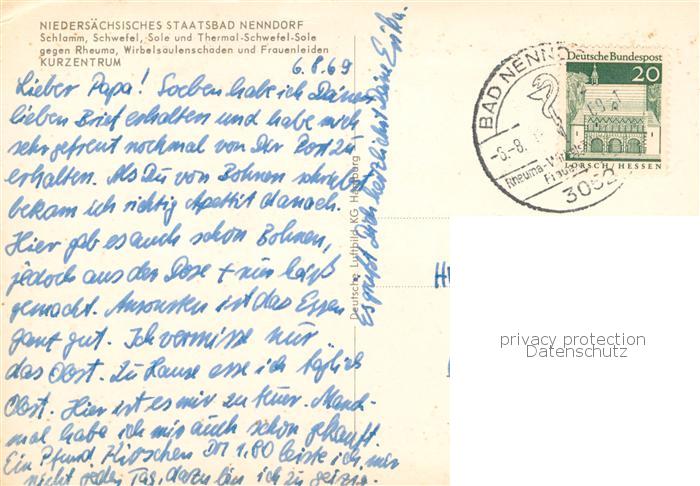 NIEDERSÄCHSISCHES STAATSBAD NENNDORF
Schlamm, Schwefel, Sole und Thermal-Schwefel-Sole
gegen Rheuma, Wirbelsäulenschäden und Frauenleiden
KURZENTRUM
6.8.69
Lieber Papa! Soeben habe ich Deinen
lieben Brief erhalten und habe mich
sehr gefreut nochmal von Dir Post zu
erhalten. Als Du von Bohnen schriebst
bekam ich richtig Apettit danach.
Hier gab es auch schon Bohnen,
jedoch aus der Dose + nur heiß
gemacht. Ansonsten ist das Essen
ganz gut. Ich vermisse nur
das Obst. Zu Hause esse ich täglich
Obst. Hier ist es mir zu teuer. Manch-
mal habe ich mir auch schon gekauft.
Ein Pfund Kirschen DM 1,80 leiste ich mir
nicht jeden Tag, dazu bin ich zu geizig.
Es grüßt Dich herzlichst Deine Erika.
Deutsche Luftbild KG Hamburg
BAD NENNDO
-6.-8.
Rheuma-
Fraue
3052
Deutsche Bundespost
20
LORSCH/HESSEN
privacy protection
Datenschutz